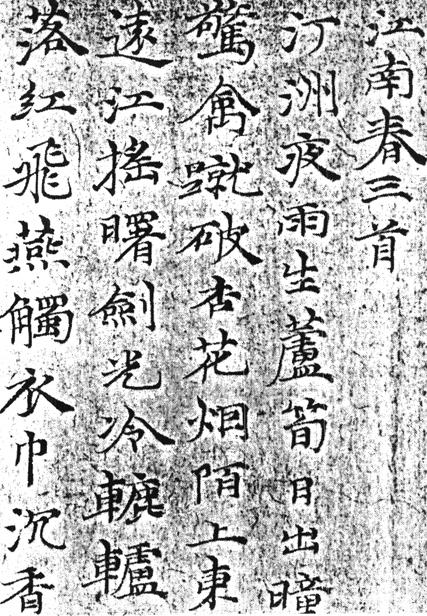 江南春三首
汀洲夜雨生蘆筍日出曈
驚禽蹴破杏花烟陌上東
遠江搖曙劍光冷轆轤
落紅飛燕觸衣巾沉香